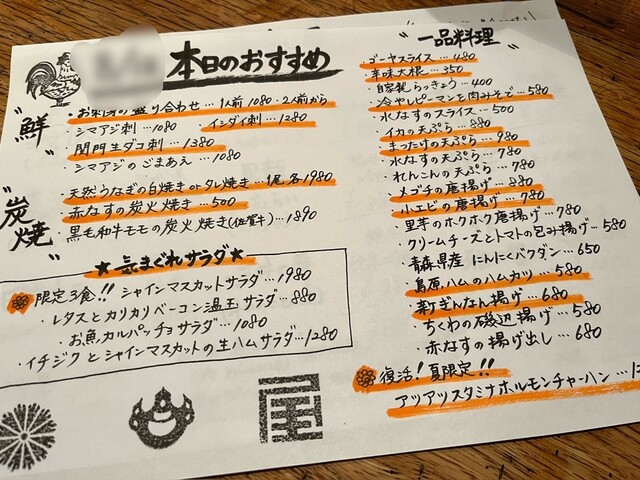 本日のおすすめ
"鮮"
・お刺身の盛り合わせ…1人前 1080・2人前から
・シマアジ刺…1080 ・イシダイ刺…1280
・関門生ダコ刺…1380
・シマアジのごまあえ…1080
"炭焼"
・天然うなぎの白焼き or タレ焼き…1尾 各1980
・赤なすの炭火焼き…500
・黒毛和牛モモの炭火焼き(佐賀牛)…1890
★気まぐれサラダ★
限定3食!! シャインマスカットサラダ…1980
・レタスとカリカリベーコン温玉サラダ…880
・お魚カルパッチョサラダ…1080
・イチジクとシャインマスカットの生ハムサラダ…1280
屋
"一品料理"
・ゴーヤスライス…480
・辛味大根…350
・自家製らっきょう…400
・冷やしピーマンと肉みそで…580
・水なすのスライス…500
・イカの天ぷら…880
・まったけの天ぷら…980
・水なすの天ぷら…780
・れんこんの天ぷら…780
・メゴチの唐揚げ…880
・小エビの唐揚げ…780
・里芋のホクホク唐揚げ…780
・クリームチーズとトマトの包み揚げ…580
・青森県産 にんにくバクダン…650
・島原ハムのハムカツ…580
・新ぎんなん揚げ…680
・ちくわの磯辺揚げ…580
・赤なすの揚げ出し…680
復活!夏限定!!
アツアツスタミナホルモンチャーハン…